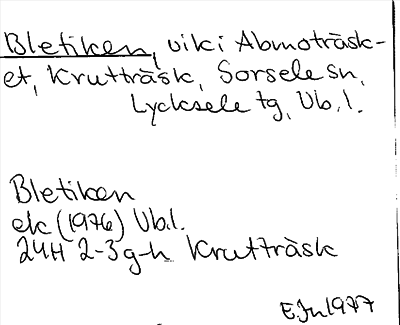 Bletiken, vik i Abmoträsk-
et, Krutträsk, Sorsele sn,
Lycksele tg, Vb.l.
Bletiken
ek (1976) Vb.l.
24H 2-3g-h Krutträsk
EJn1977